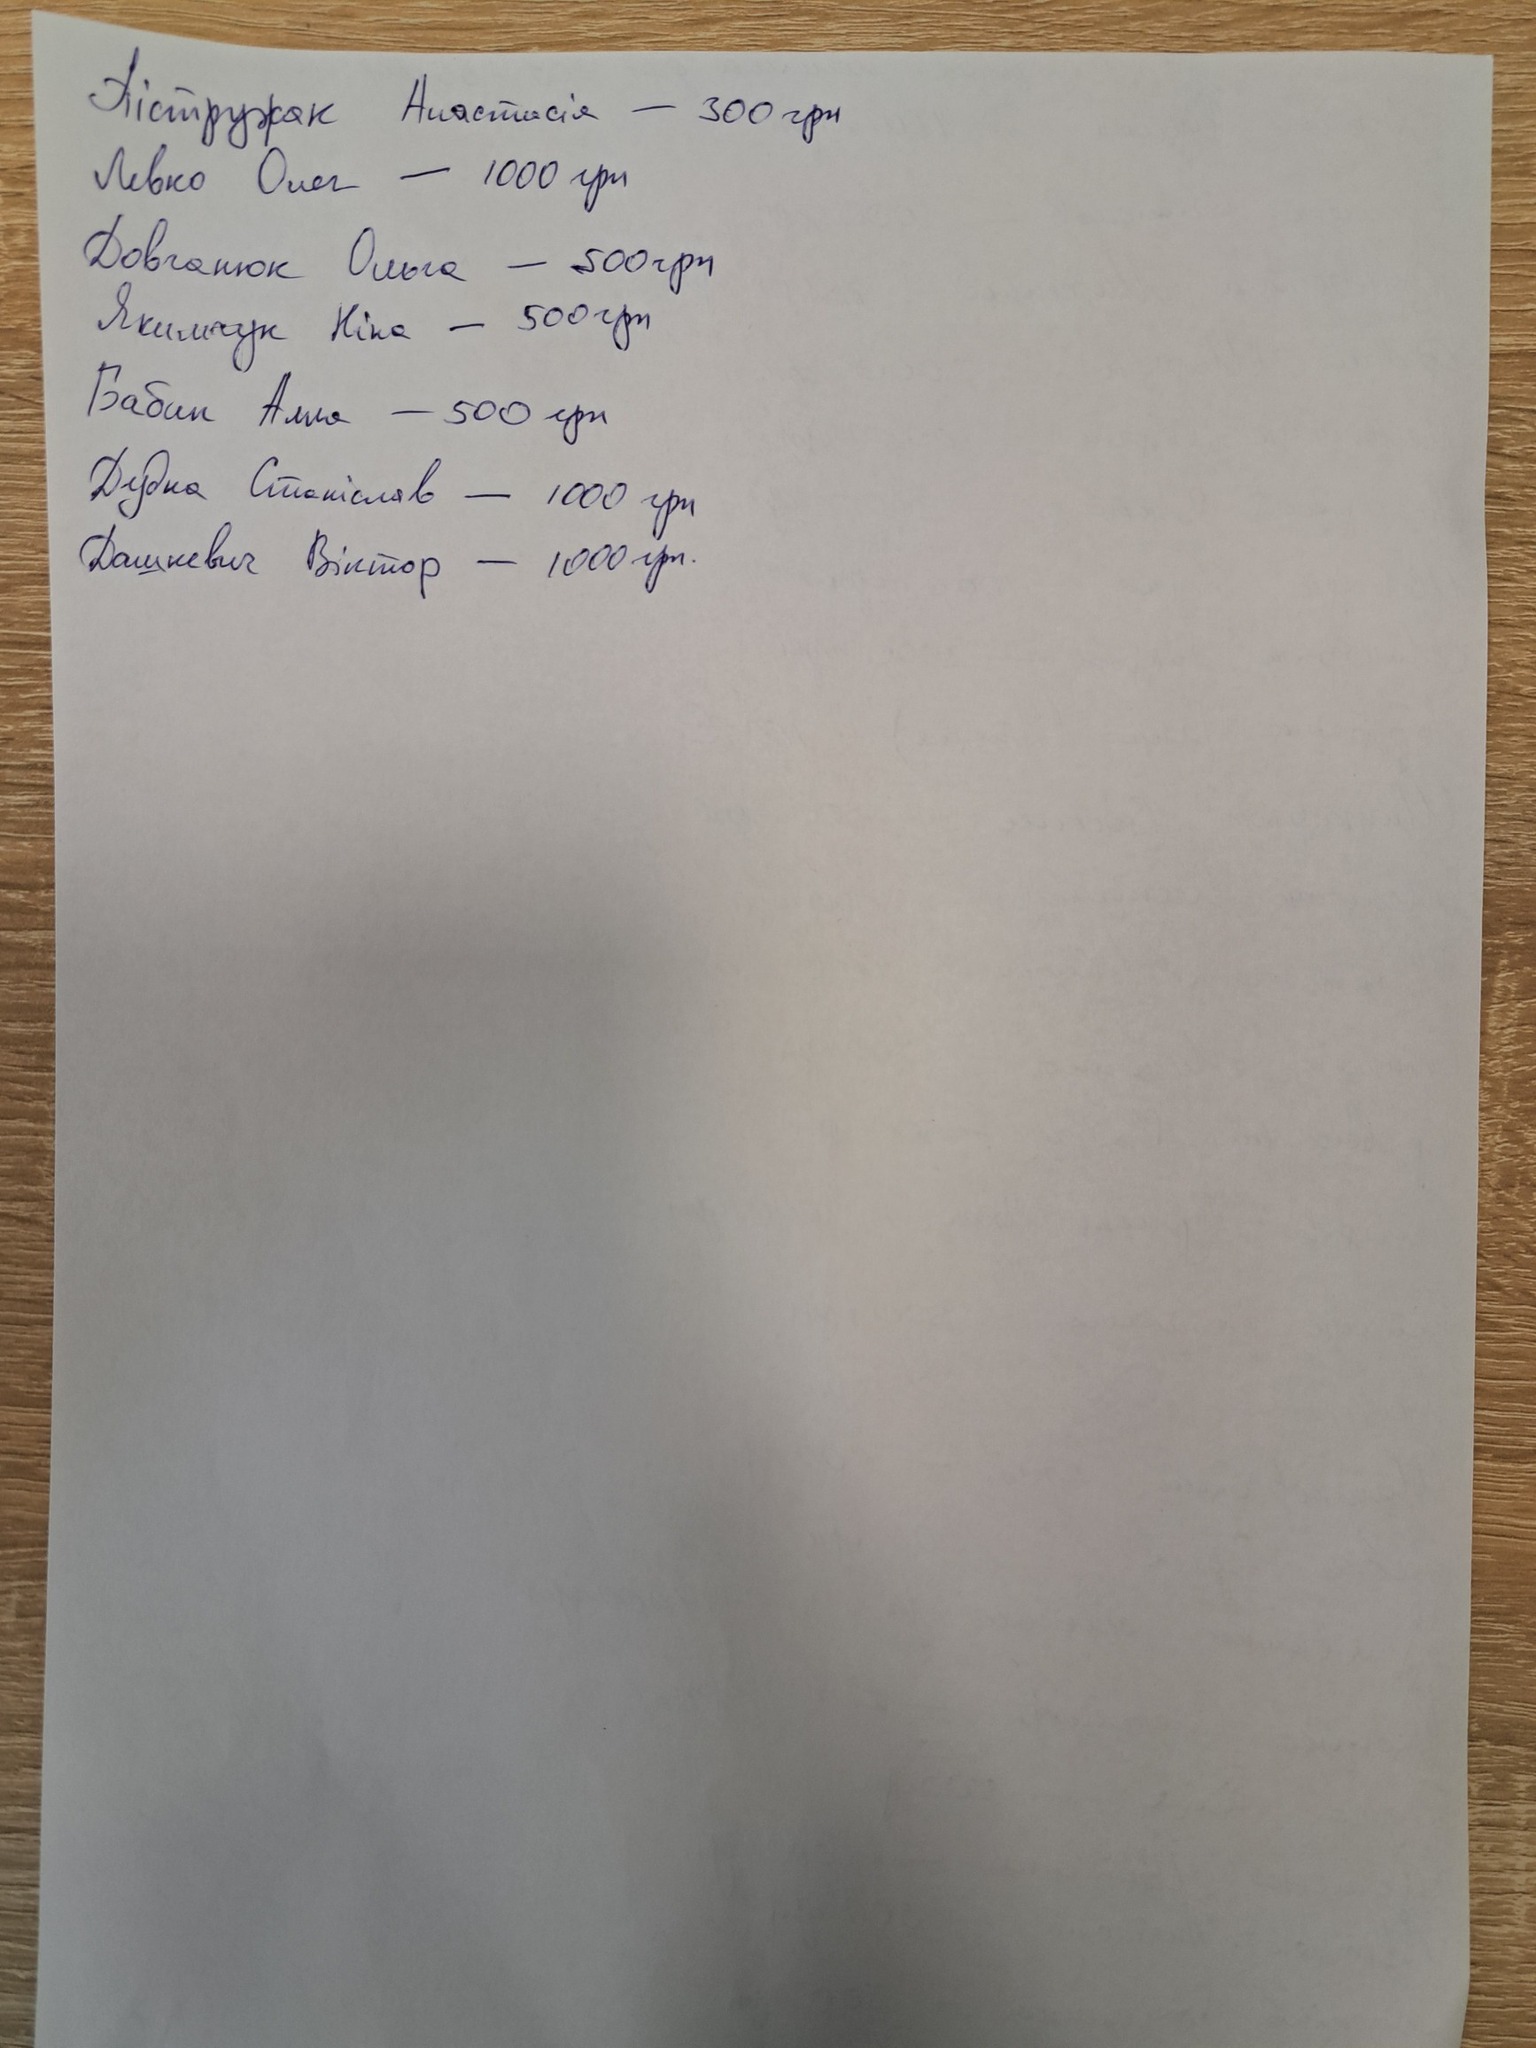 Пістружак Анастасія — 300 грн
Левко Олег — 1000 грн
Довганюк Ольга — 500 грн
Якимчук Ніна — 500 грн
Бабин Алла — 500 грн
Дубна Станіслав — 1000 грн
Дашкевич Віктор — 1000 грн.